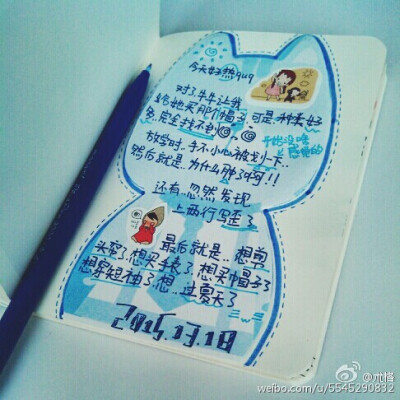 今天好热quq
对了牛牛让我
给她买那个帽子可是种类好
多完全找不到
放学时..手不小心被划一下
然后就是为什么肿了啊!!
还有..忽然发现
上两行写歪了
最后就是..想剪
头发了想买手表了想买帽子了
想穿短袖了想..过夏天了
=w=
2015.03.18
weibo.com/u/5545290832